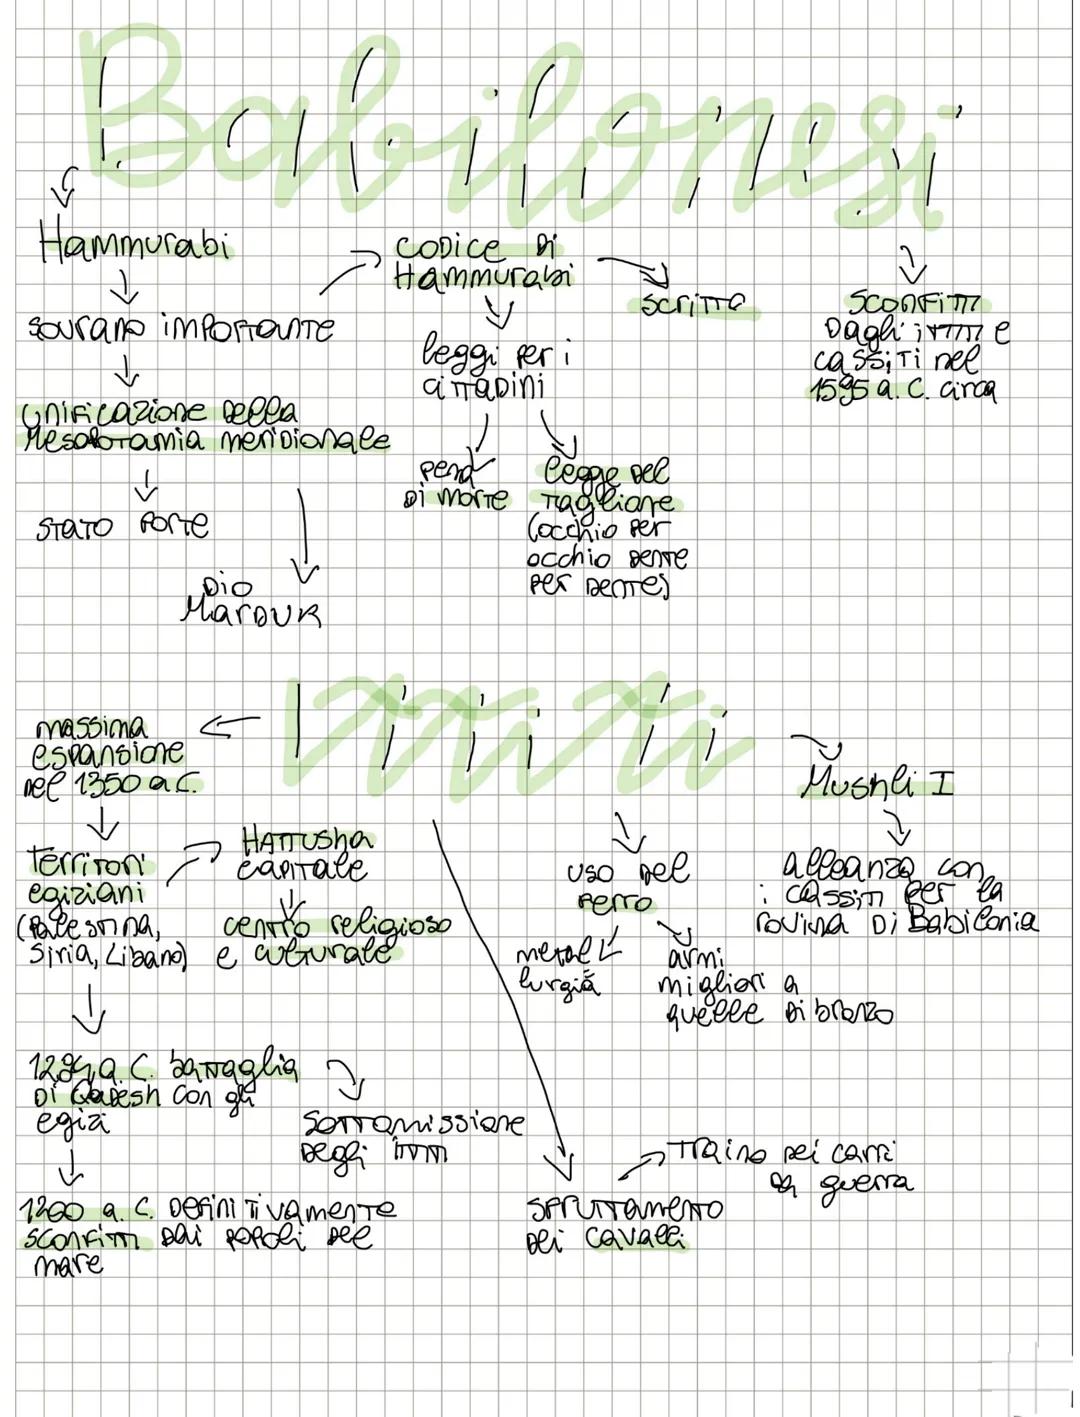 Babilonesi
Hammurabi
sovrano importante
unificazione della
Mesopotamia meridionale
stato forte
Dio
Marduk
codice di
Hammurabi
scritto
leggi per i
cittadini
pena
di morte
legge del
tagliane
(occhio per
occhio dente
per dente)
sconfitti
dagli ittiti e
cassiti nel
1595 a.C. circa
Ittiti
massima
espansione
nel 1350 a.C.
territori
egiziani
(Palestina,
Siria, Libano)
Hattusha
capitale
centro religioso
e culturale
a.C. battaglia
di Qadesh con gli
egizi
sottomissione
degli ittiti
1200 a.C. definitivamente
sconfitti dai popoli del
mare
uso del
ferro
metal
lurgia
armi
migliori a
quelle di bronzo
I
alleanza con
i cassiti per la
rovina di Babilonia
sfruttamento
dei cavalli
traino dei carri
da guerra